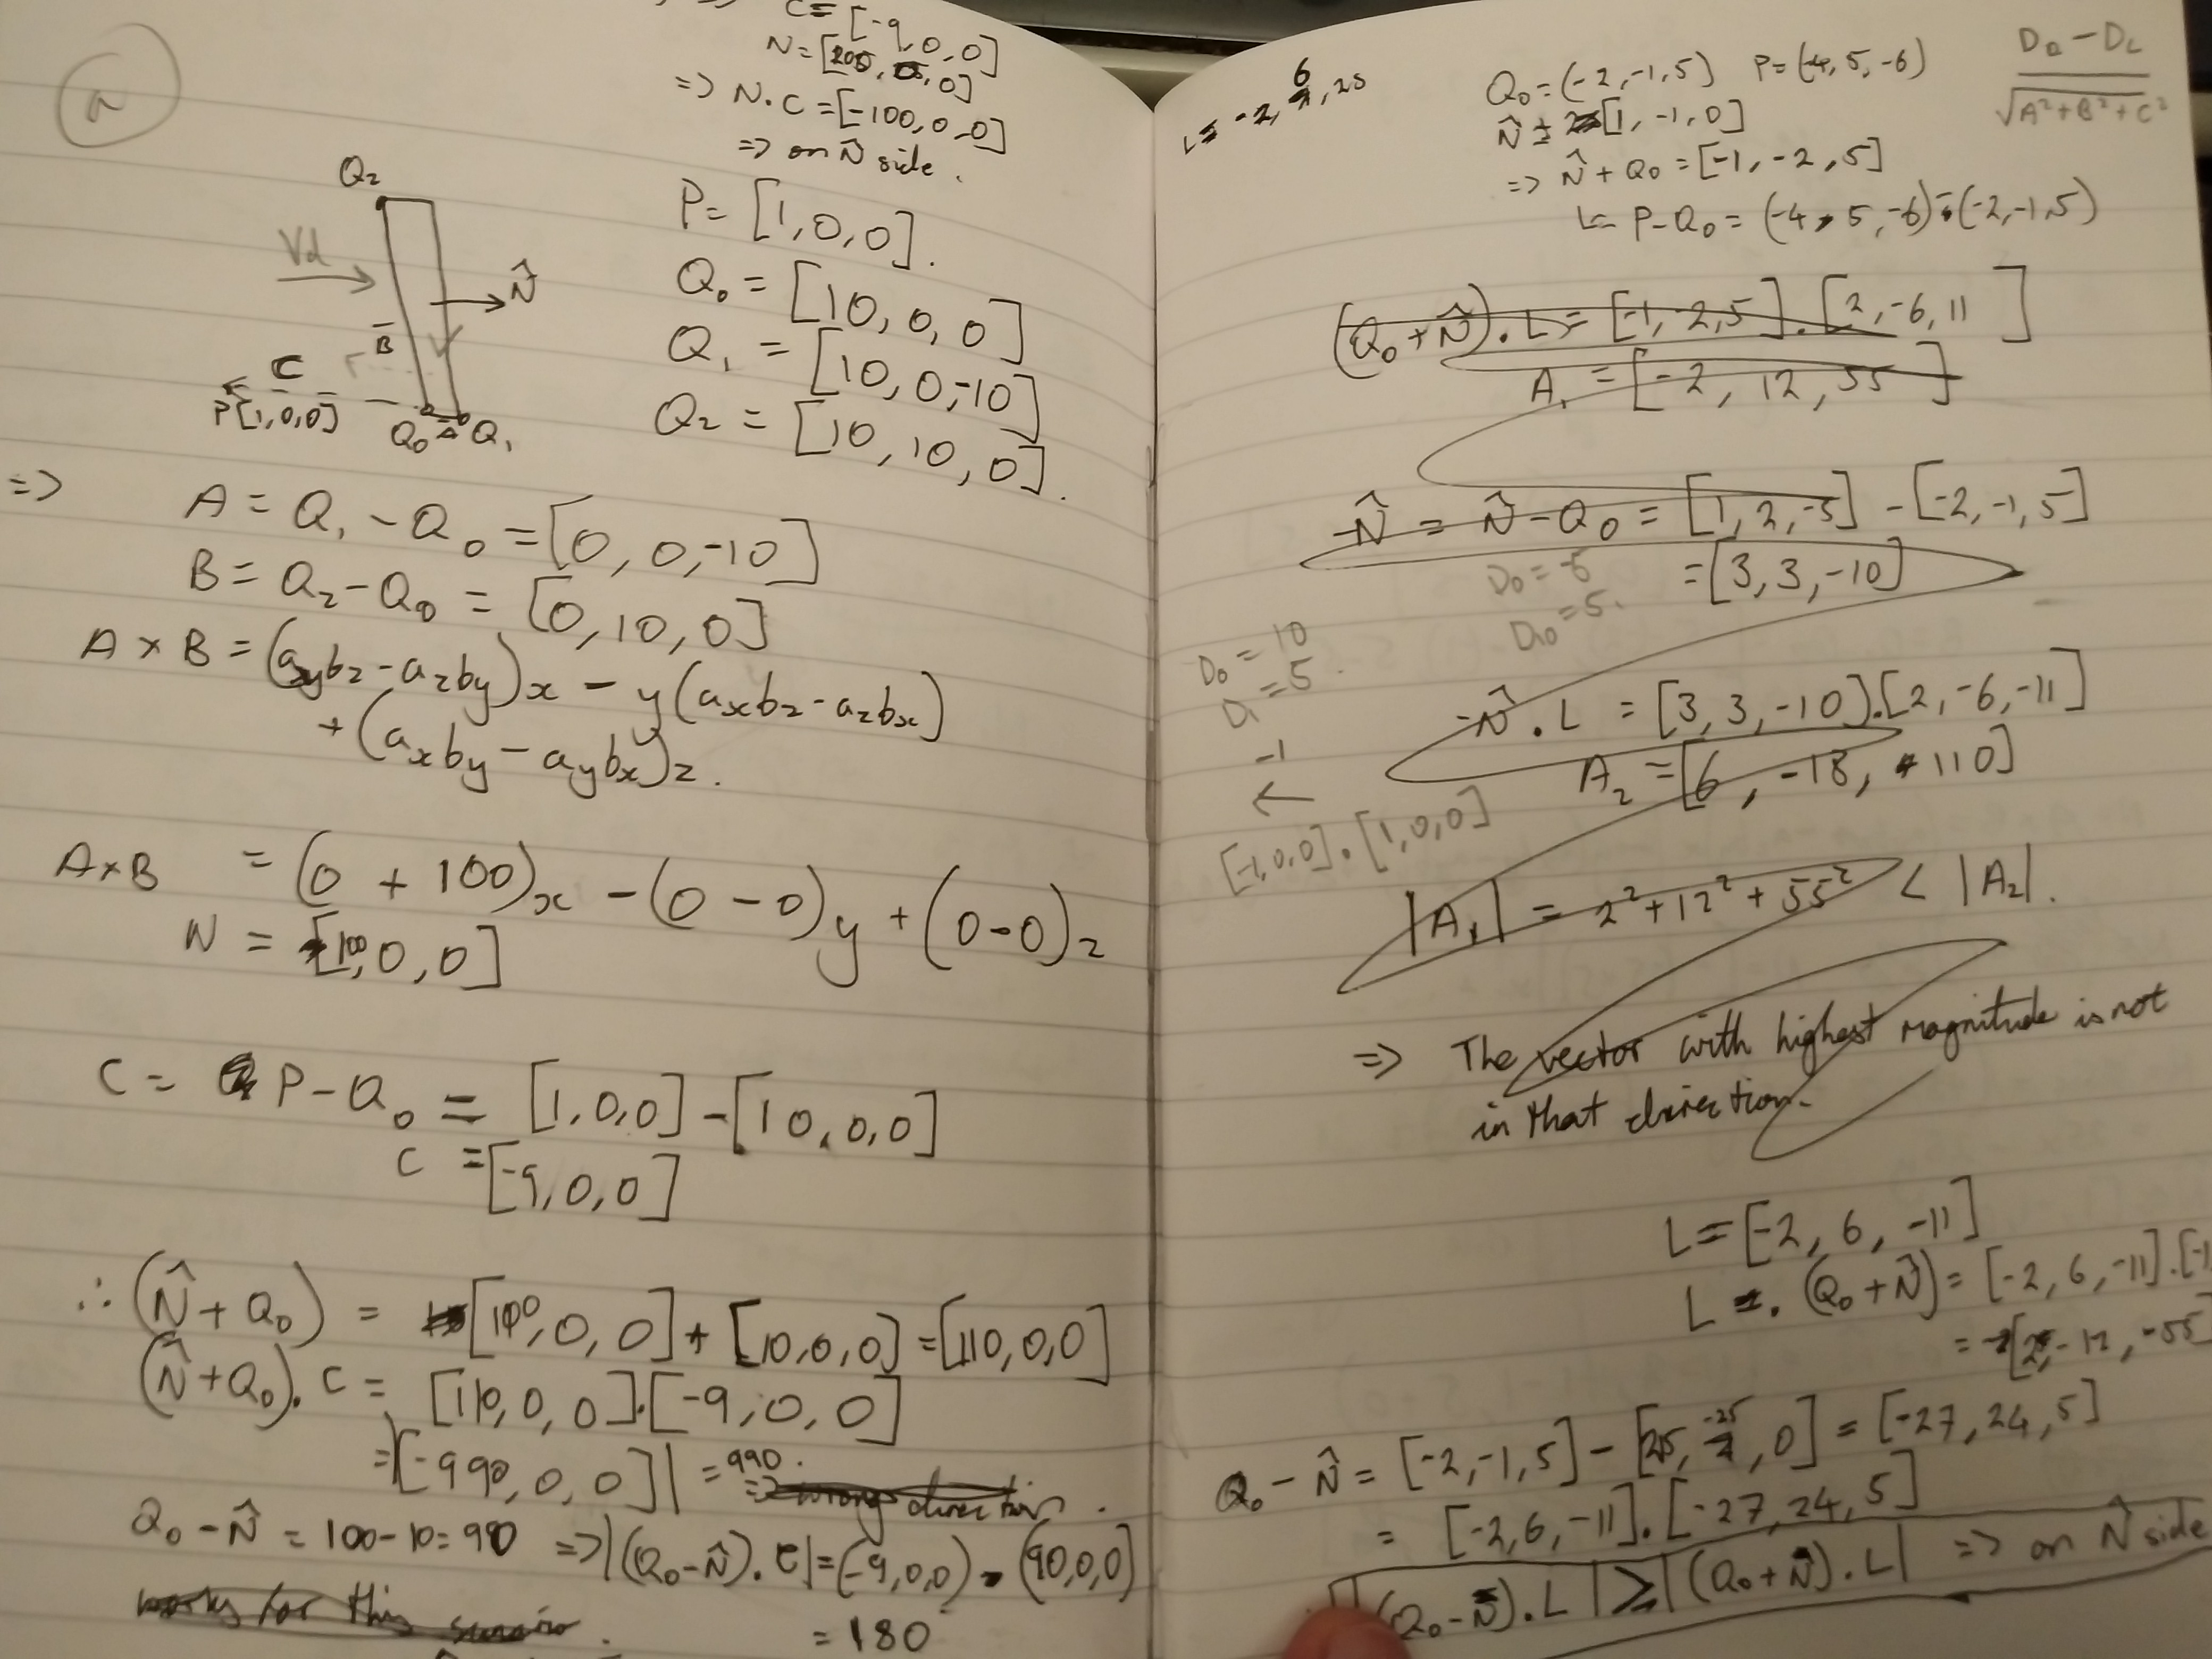 C = [-9, 0, 0]
N = [200, 0]
=> N . C = [-100, 0, 0]
=> on N̂ side.
Q₂
Vd
N̂
B̄
C
P[1,0,0]
Q₀ A Q₁
P = [1, 0, 0].
Q₀ = [10, 0, 0]
Q₁ = [10, 0, -10]
Q₂ = [10, 10, 0].
=> A = Q₁ - Q₀ = [0, 0, -10]
B = Q₂ - Q₀ = [0, 10, 0]
A × B = (aybz - azby)x - y(axbz - azbx)
+ (axby - aybx)z.
A×B = (0 + 100)x - (0 - 0)y + (0-0)z
N = [100, 0, 0]
C = P - Q₀ = [1, 0, 0] - [10, 0, 0]
C = [-9, 0, 0]
∴ (N̂ + Q₀) = [100, 0, 0] + [10, 0, 0] = [110, 0, 0]
(N̂ + Q₀). C = [110, 0, 0].[-9, 0, 0]
=|[-990, 0, 0]| = 990.
=> wrong direction.
Q₀ - N̂ = 100-10=90 => |(Q₀-N̂). C| = (-9,0,0) . (90,0,0)
= 180
works for this scenario.
L = -2, 6, 25
Q₀ = (-2, -1, 5) P = (-4, 5, -6)
N̂ = [1, -1, 0]
=> N̂ + Q₀ = [-1, -2, 5]
L = P - Q₀ = (-4, 5, -6) - (-2, -1, 5)
D₂ - D₁
√A² + B² + C²
(Q₀ + N̂). L = [-1, -2, 5].[2, -6, 11]
A₁ = [-2, 12, 55]
-N̂ = N̂ - Q₀ = [1, 2, -5] - [-2, -1, 5]
= [3, 3, -10]
D₀ = -5
D₁₀ = 5.
D₀ = 10
D₁ = 5.
-N̂ . L = [3, 3, -10].[2, -6, -11]
A₂ = [6, -18, 110]
-1
←
[-1,0,0] . [1,0,0]
|A₁| = 2² + 12² + 55² < |A₂|.
=> The vector with highest magnitude is not
in that direction.
L = [-2, 6, -11]
L . (Q₀ + N̂) = [-2, 6, -11].[-1
= [2, -12, -55]
Q₀ - N̂ = [-2, -1, 5] - [25, -25, 0] = [-27, 24, 5]
= [-2, 6, -11] . [-27, 24, 5]
(Q₀ - N̂). L | ≥ | (Q₀ + N̂). L | => on N̂ side